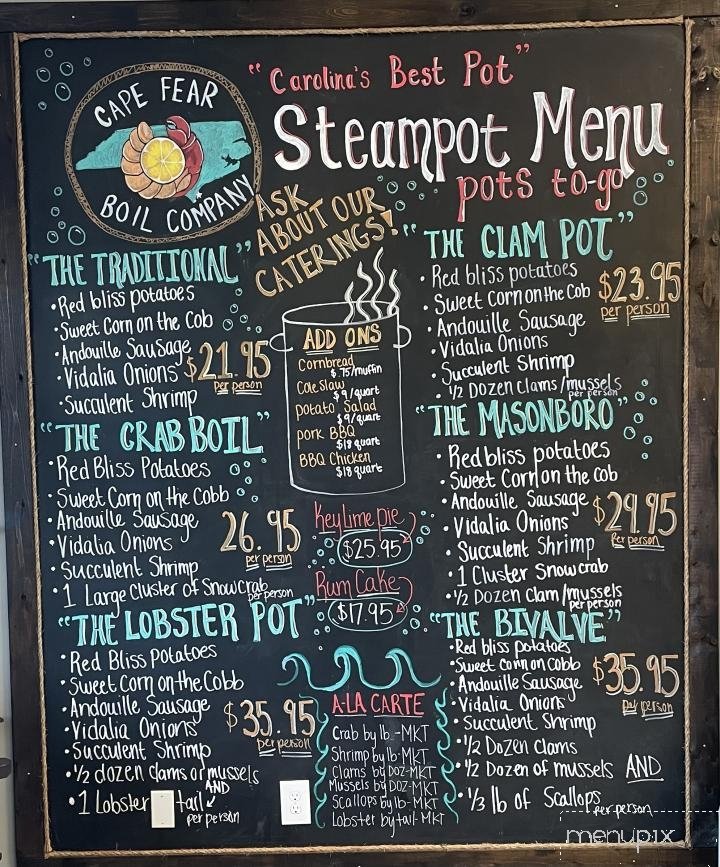 CAPE FEAR
BOIL COMPANY
"Carolina's Best Pot"
Steampot Menu
pots to-go
ASK
ABOUT OUR
CATERINGS!
"THE TRADITIONAL"
• Red bliss potatoes
• Sweet Corn on the Cob
• Andouille Sausage
• Vidalia Onions
• Succulent Shrimp
$21.95
per person
"THE CRAB BOIL"
• Red Bliss Potatoes
• Sweet Corn on the Cobb
• Andouille Sausage
• Vidalia Onions
• Succulent Shrimp
• 1 Large Cluster of Snowcrab
per person
26.95
per person
"THE LOBSTER POT"
• Red Bliss Potatoes
• Sweet Corn on the Cobb
• Andouille Sausage
• Vidalia Onions
• Succulent Shrimp
• 1/2 dozen clams or mussels
AND
• 1 Lobster tail
per person
$35.95
per person
ADD ONS
Cornbread
$.75/muffin
Cole Slaw
$9/quart
potato Salad
$9/quart
pork BBQ
$18 quart
BBQ Chicken
$18 quart
Key lime pie
$25.95
Rum Cake
$17.95
A-LA CARTE
Crab by lb.-MKT
Shrimp by lb-MKT
Clams by DOZ-MKT
Mussels by DOZ-MKT
Scallops by lb-MKT
Lobster by tail-MKT
"THE CLAM POT"
• Red bliss potatoes
• Sweet Corn on the Cob
• Andouille Sausage
• Vidalia Onions
• Succulent Shrimp
• 1/2 Dozen clams/mussels
per person
$23.95
per person
"THE MASONBORO"
• Red bliss potatoes
• Sweet Corn on the cob
• Andouille Sausage
• Vidalia Onions
• Succulent Shrimp
• 1 Cluster Snowcrab
• 1/2 Dozen clam/mussels
per person
$29.95
per person
"THE BIVALVE"
• Red bliss potatoes
• Sweet corn on cobb
• Andouille Sausage
• Vidalia Onions
• Succulent Shrimp
• 1/2 Dozen clams
• 1/2 Dozen of mussels AND
• 1/3 lb of Scallops
per person
$35.95
per person
menupix